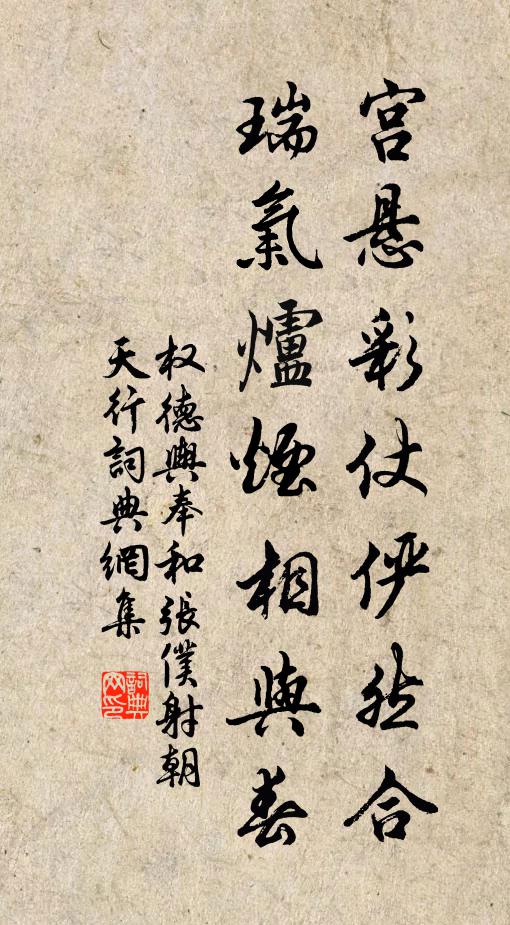 宫悬彩仗俨然合
瑞氣爐煙相與春
权德輿奉和張僕射朝
天行詞典網集
詞典网印